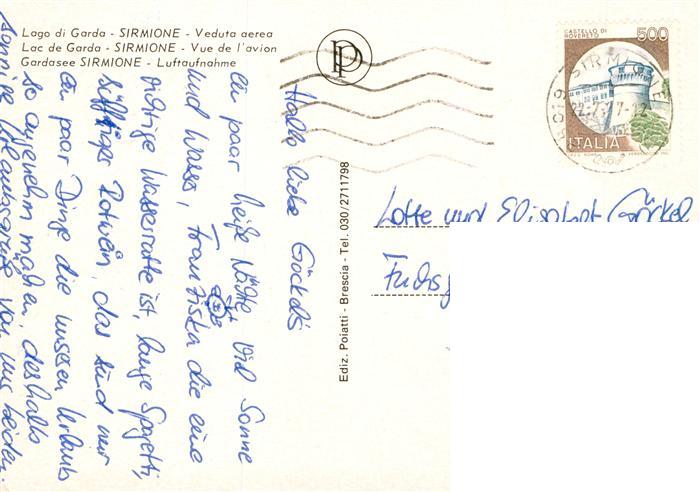 Lago di Garda - SIRMIONE - Veduta aerea
Lac de Garda - SIRMIONE - Vue de l'avion
Gardasee SIRMIONE - Luftaufnahme
CASTELLO DI
ROVERETO
500
ITALIA
SIRMIONE
Ediz. Poiatti - Brescia - Tel. 030/2711798
Hallo liebe Göckels
ein paar heiße Nächte viel Sonne
und Wasser, Franziska die eine
richtige Wasserratte ist, lange Spagetti,
süffiger Rotwein, das sind nur
ein paar Dinge die unseren Urlaub
so angenehm machen, deshalb
sonnige Urlaubsgrüße von uns beiden.
Lotte und Elisabet Göckel
Fuchs